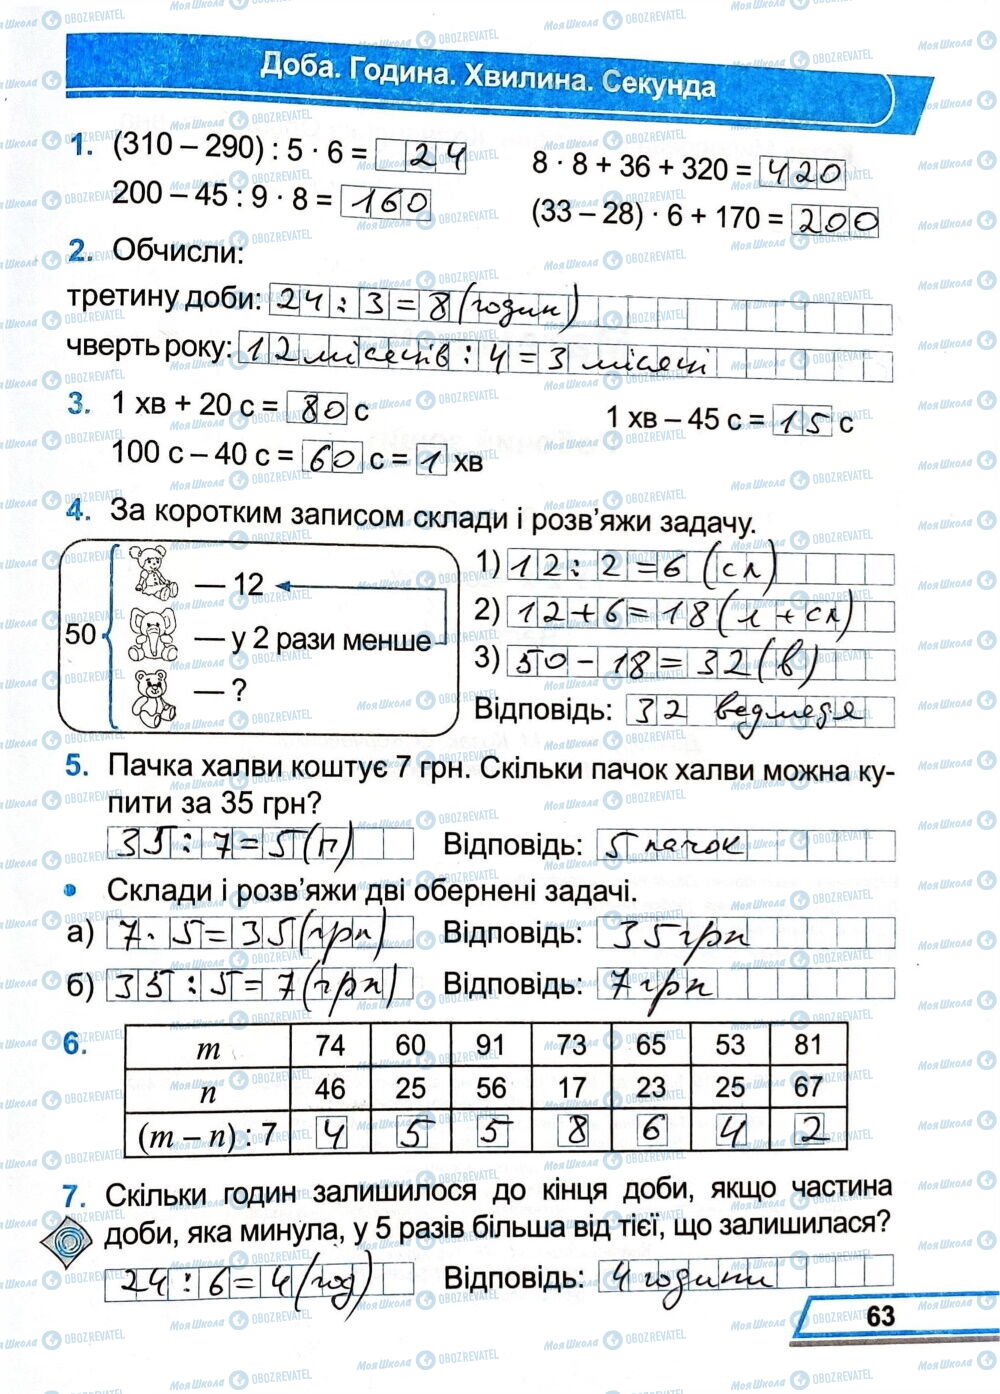 Доба. Година. Хвилина. Секунда
1. (310 – 290) : 5 · 6 = 24
8 · 8 + 36 + 320 = 420
200 – 45 : 9 · 8 = 160
(33 – 28) · 6 + 170 = 200
2. Обчисли:
третину доби: 24 : 3 = 8 (годин)
чверть року: 12 місяців : 4 = 3 місяці
3. 1 хв + 20 с = 80 с
1 хв – 45 с = 15 с
100 с – 40 с = 60 с = 1 хв
4. За коротким записом склади і розв’яжи задачу.
50
— 12
— у 2 рази менше
— ?
1) 12 : 2 = 6 (сл)
2) 12 + 6 = 18 (л + сл)
3) 50 – 18 = 32 (в)
Відповідь: 32 ведмедя
5. Пачка халви коштує 7 грн. Скільки пачок халви можна ку-
пити за 35 грн?
35 : 7 = 5 (п) Відповідь: 5 пачок
• Склади і розв’яжи дві обернені задачі.
а) 7 · 5 = 35 (грн) Відповідь: 35 грн
б) 35 : 5 = 7 (грн) Відповідь: 7 грн
6. m 74 60 91 73 65 53 81
n 46 25 56 17 23 25 67
(m – n) : 7 4 5 5 8 6 4 2
7. Скільки годин залишилося до кінця доби, якщо частина
доби, яка минула, у 5 разів більша від тієї, що залишилася?
24 : 6 = 4 (год) Відповідь: 4 години
63